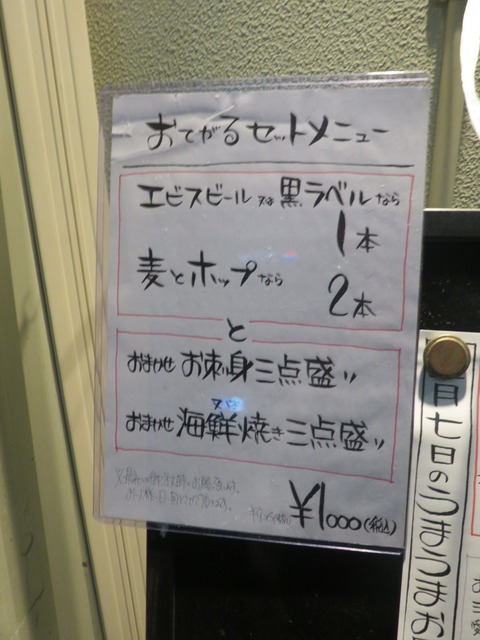 おてがるセットメニュー
エビスビール又は黒ラベルなら
1本
麦とホップなら
2本
と
おまかせ お刺身三点盛り
又は
おまかせ 海鮮焼き三点盛り
¥1000(税込)
月七日のうまうまお